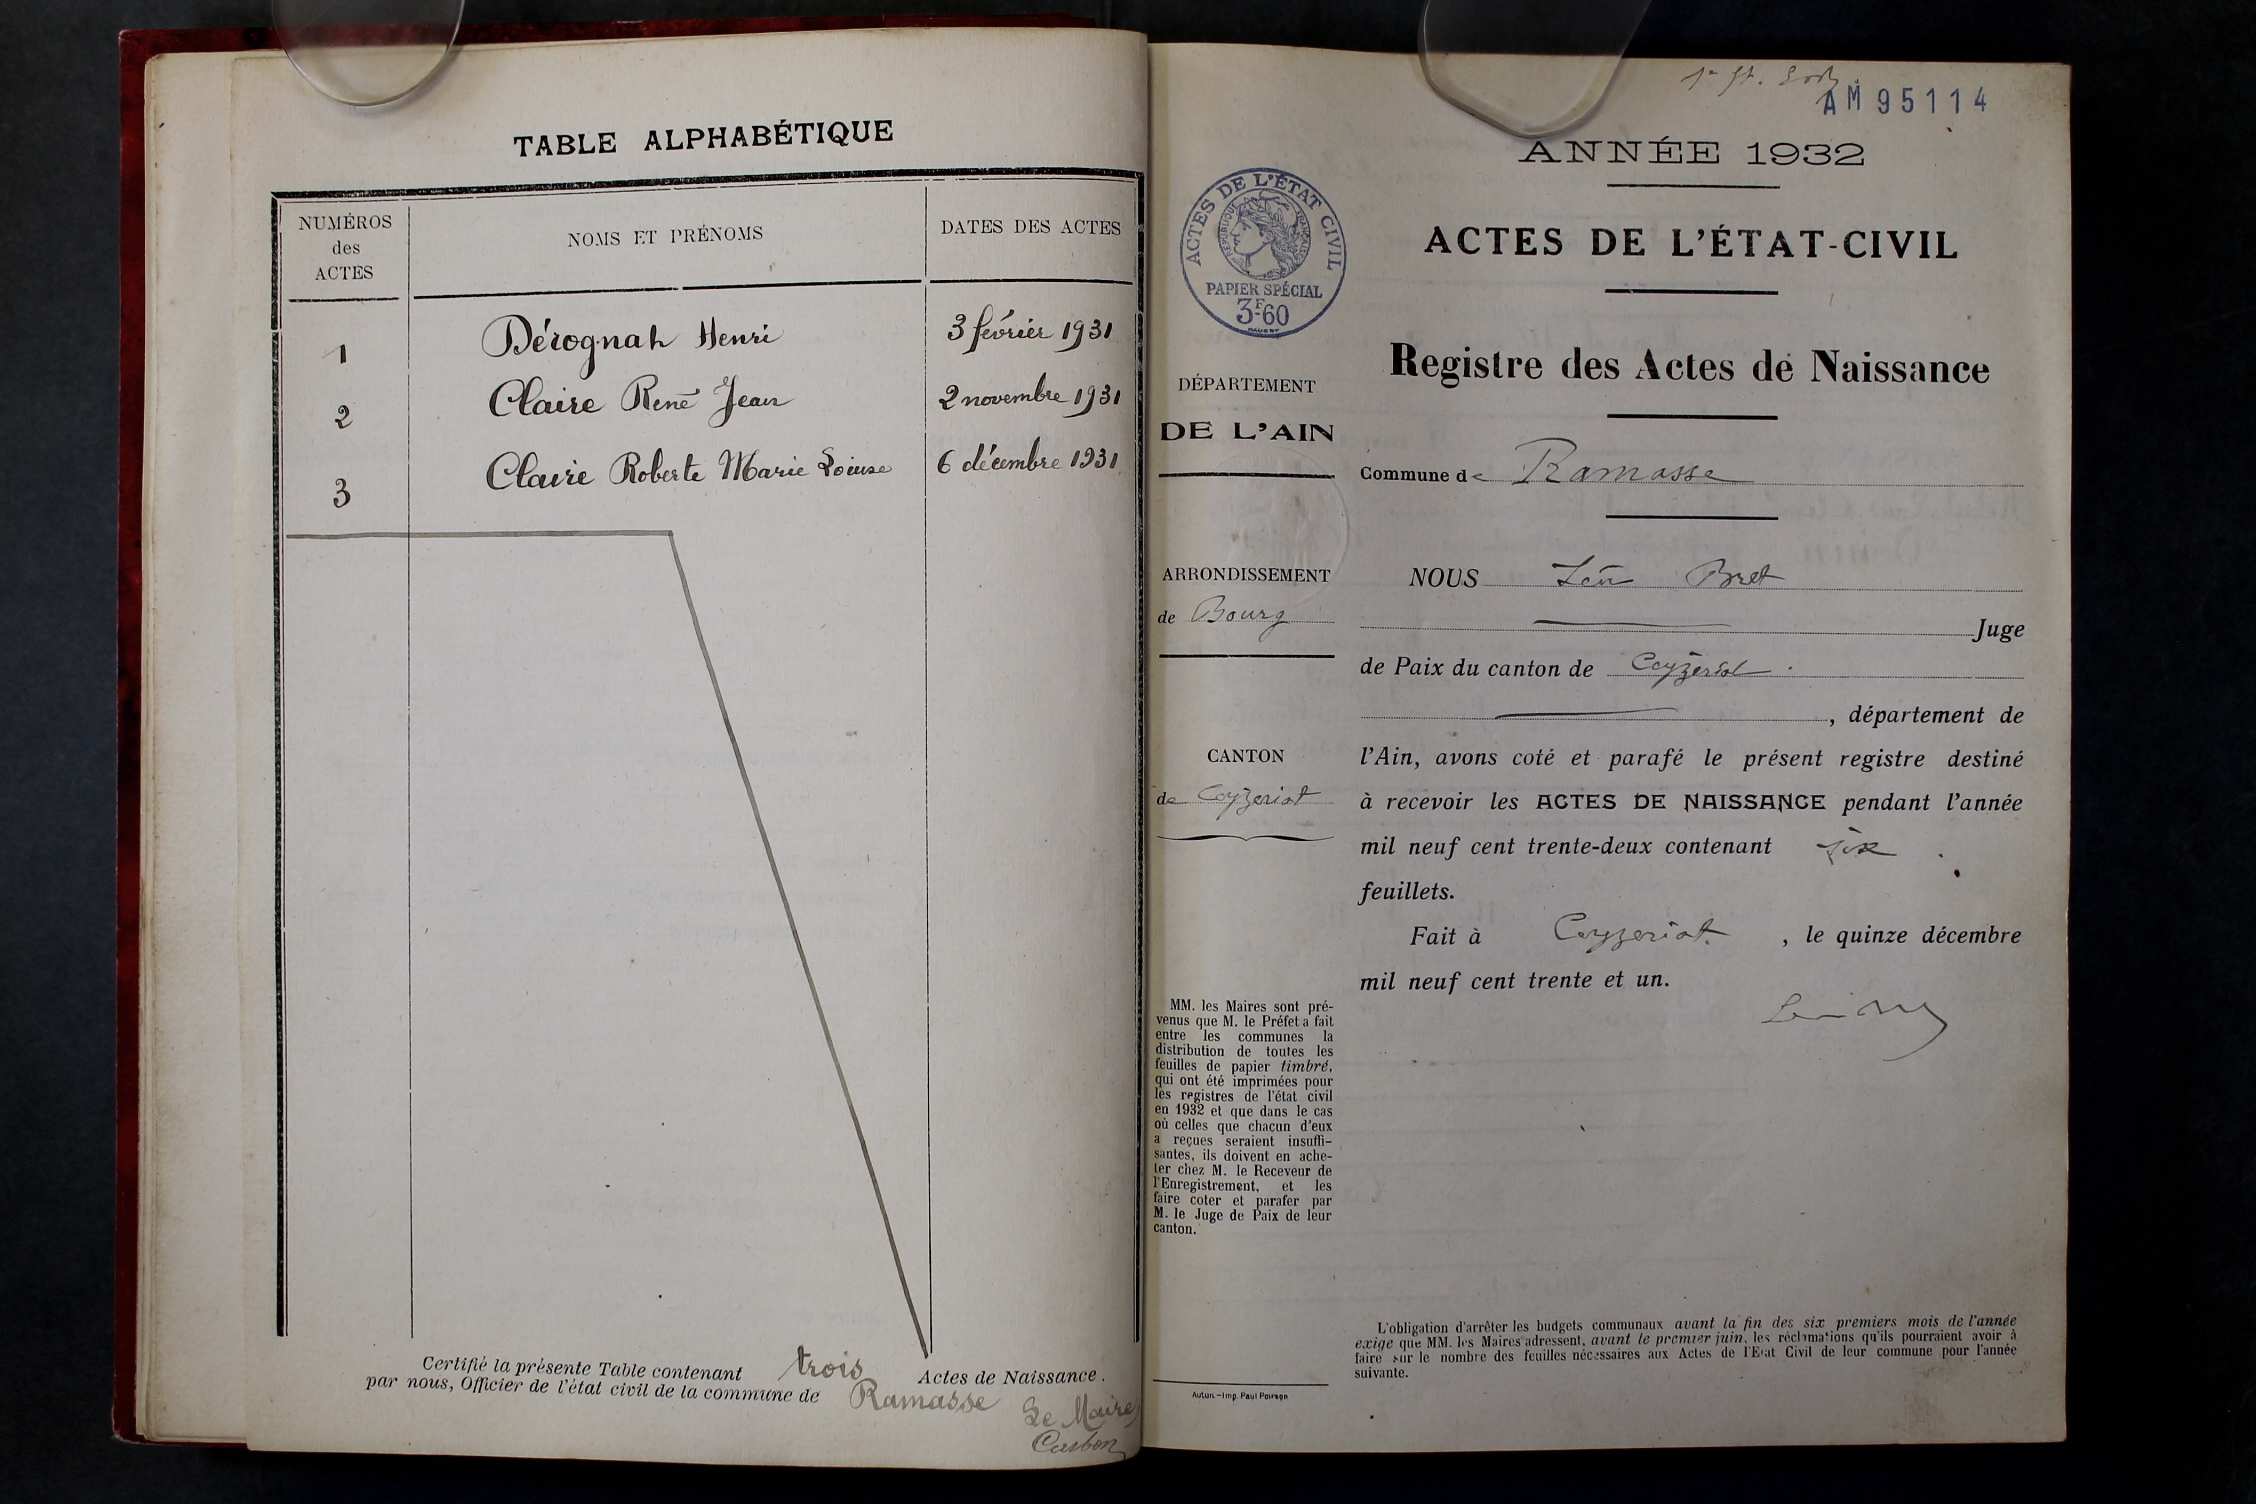 TABLE ALPHABÉTIQUE
NUMÉROS des ACTES
NOMS ET PRÉNOMS
DATES DES ACTES
1 Dérognah Henri 3 février 1931
2 Claire René Jean 2 novembre 1931
3 Claire Roberte Marie Louise 6 décembre 1931
Certifié la présente Table contenant trois Actes de Naissance.
par nous, Officier de l'état civil de la commune de Ramasse
Le Maire
AM 95114
ANNÉE 1932
ACTES DE L'ÉTAT CIVIL
RÉPUBLIQUE FRANÇAISE
PAPIER SPÉCIAL
3F60
ACTES DE L'ÉTAT-CIVIL
Registre des Actes de Naissance
DÉPARTEMENT
DE L'AIN
ARRONDISSEMENT
de Bourg
CANTON
de Ceyzeriat
MM. les Maires sont pré-
venus que M. le Préfet a fait
entre les communes la
distribution de toutes les
feuilles de papier timbré,
qui ont été imprimées pour
les registres de l'état civil
en 1932 et que dans le cas
où celles que chacun d'eux
a reçues seraient insuffi-
santes, ils doivent en ache-
ter chez M. le Receveur de
l'Enregistrement, et les
faire coter et parafer par
M. le Juge de Paix de leur
canton.
Autun.-Imp. Paul Poirson
Commune de Ramasse
NOUS Léon Bret
Juge
de Paix du canton de Ceyzeriat
, département de
l'Ain, avons coté et parafé le présent registre destiné
à recevoir les ACTES DE NAISSANCE pendant l'année
mil neuf cent trente-deux contenant six
feuillets.
Fait à Ceyzeriat, le quinze décembre
mil neuf cent trente et un.
L'obligation d'arrêter les budgets communaux avant la fin des six premiers mois de l'année
exige que MM. les Maires adressent, avant le premier juin, les réclamations qu'ils pourraient avoir à
faire sur le nombre des feuilles nécessaires aux Actes de l'Etat Civil de leur commune pour l'année
suivante.